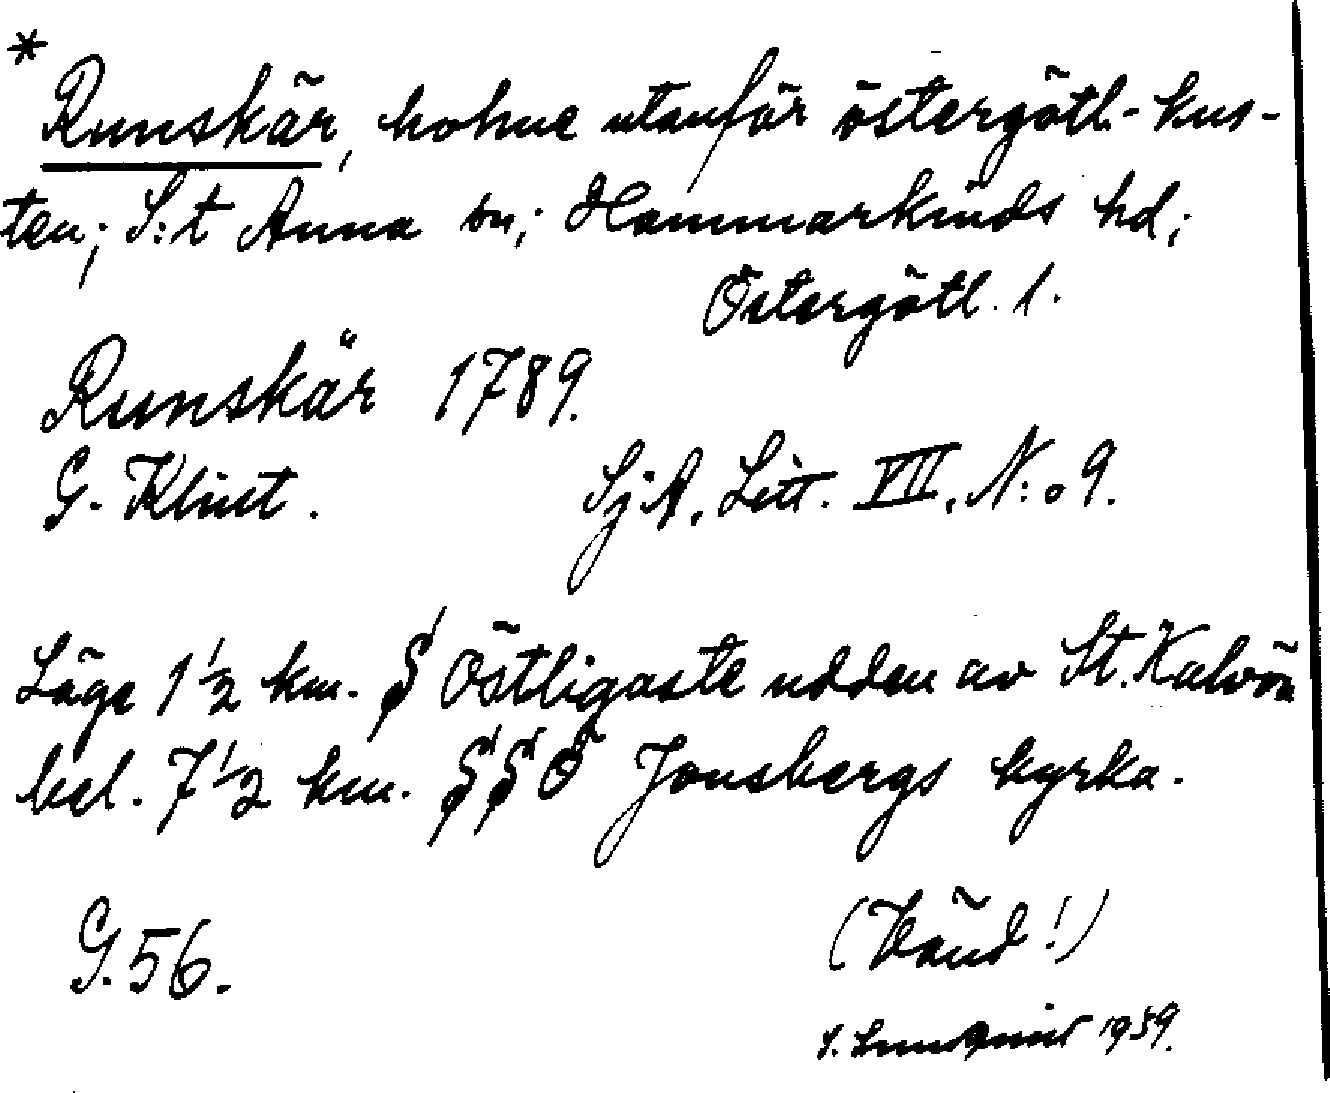 *
Runskär, holme utanför östergötl.-kus-
ten; S:t Anna sn; Hammarkinds hd;
Östergötl. l.
Runskär 1789.
G. Klint. SjA, Litt. VII, N:o 9.
Läge 1 1/2 km. S Östligaste udden av St. Kalvön
bel. 7 1/2 km. SSÖ Jonsbergs kyrka.
G. 56. (Vänd!)
1959.